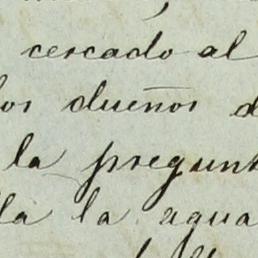 cercado al
los dueños d
la pregunt
la la agua